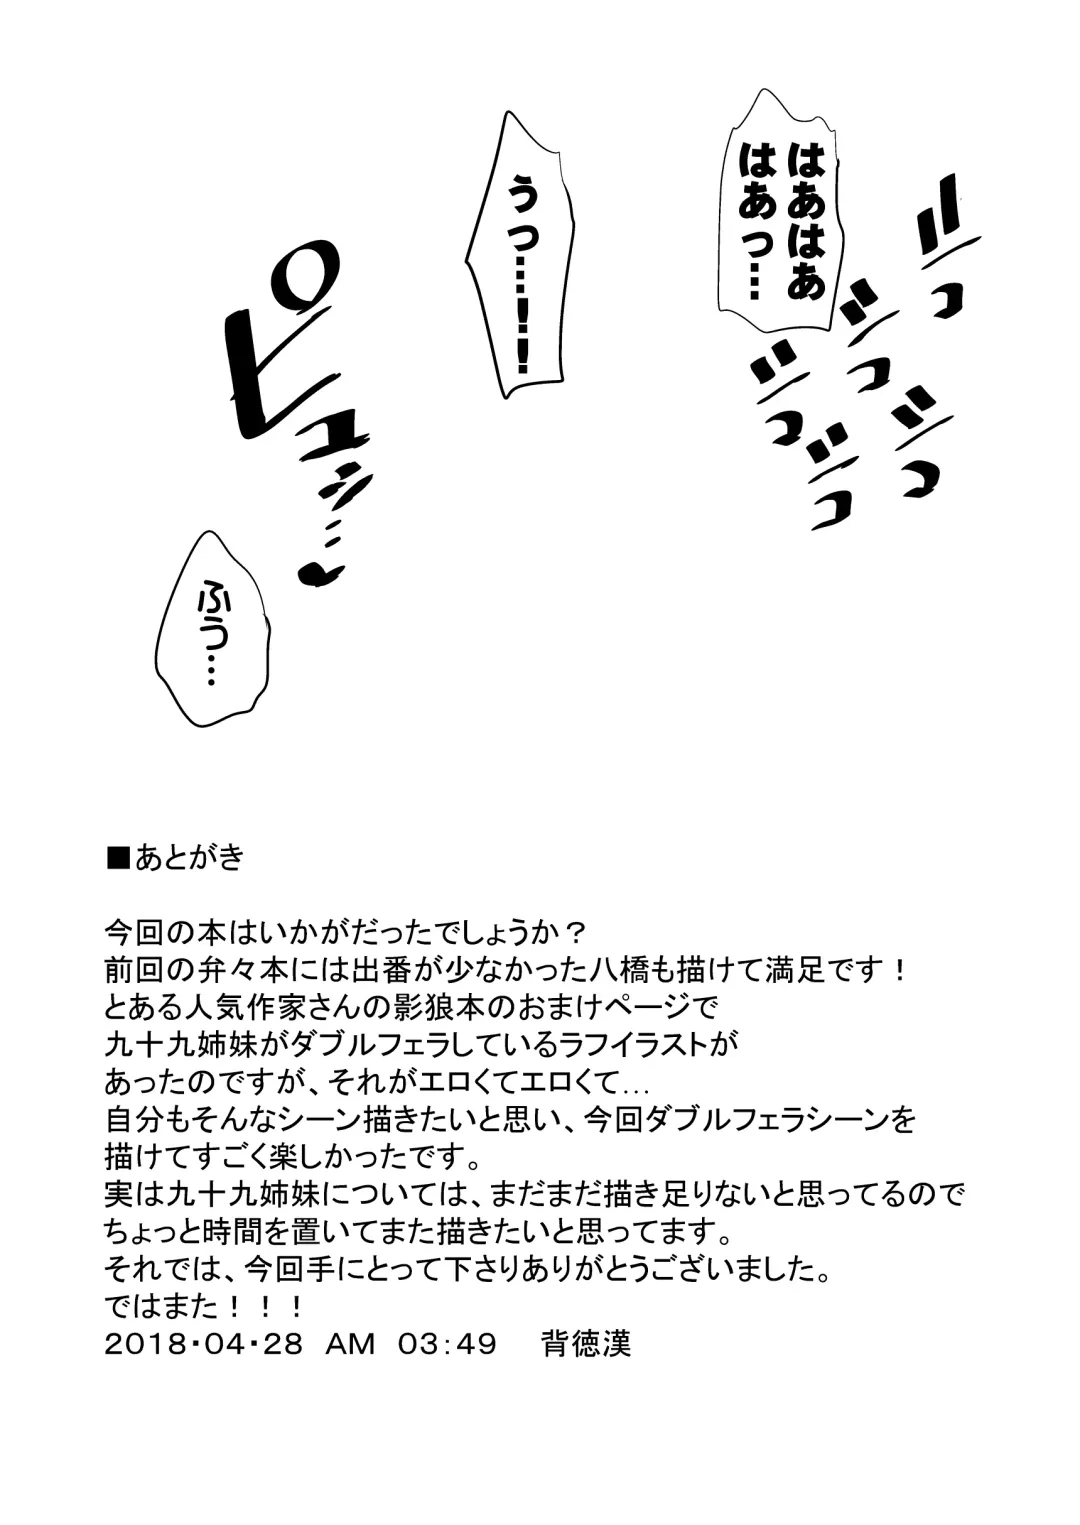 はあはあ
はあっ…
ジっ
ジっ
ジっ
ジっ
ジっ
うっ…!!
ピュッ…
ふぅ…
■あとがき
今回の本はいかがだったでしょうか？
前回の弁々本には出番が少なかった八橋も描けて満足です！
とある人気作家さんの影狼本のおまけページで
九十九姉妹がダブルフェラしているラフイラストが
あったのですが、それがエロくてエロくて…
自分もそんなシーン描きたいと思い、今回ダブルフェラシーンを
描けてすごく楽しかったです。
実は九十九姉妹については、まだまだ描き足りないと思ってるので
ちょっと時間を置いてまた描きたいと思ってます。
それでは、今回手にとって下さりありがとうございました。
ではまた！！！
2018・04・28　AM　03：49　背徳漢